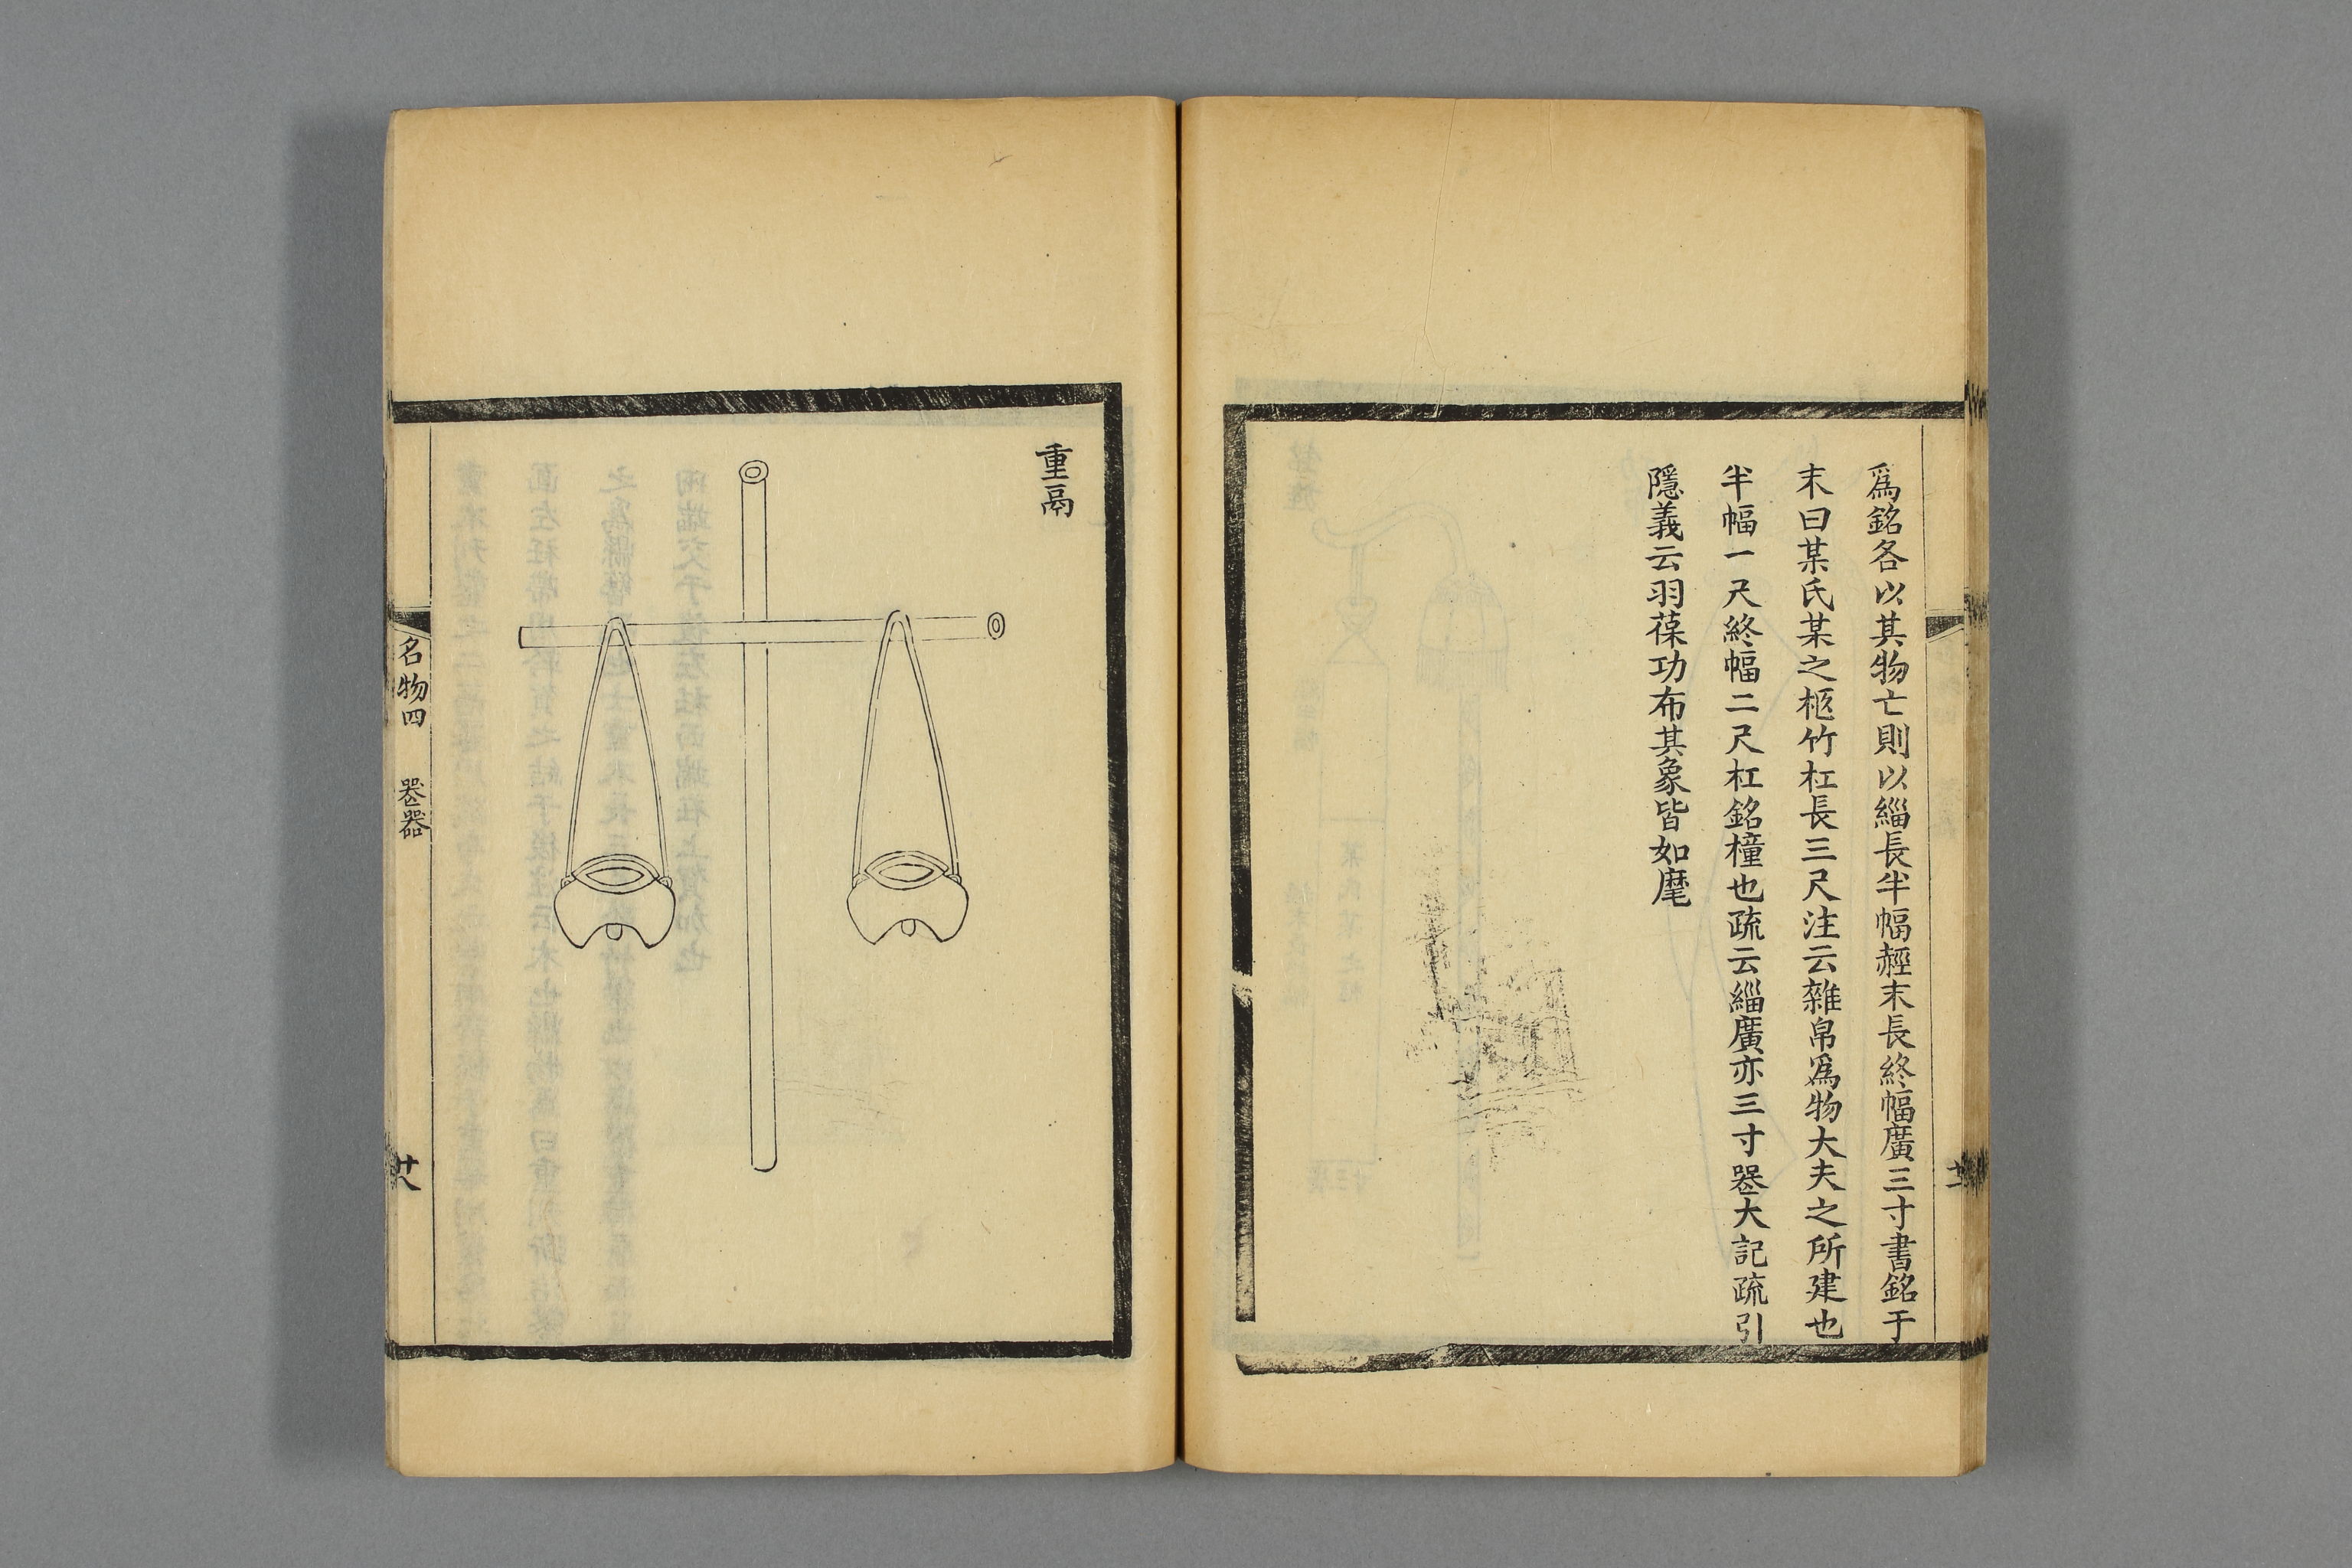 爲銘各以其物亡則以緇長半幅赬末長終幅廣三寸書銘于
末曰某氏某之柩竹杠長三尺注云雜帛爲物大夫之所建也
半幅一尺終幅二尺杠銘橦也疏云緇廣亦三寸䘮大記疏引
隱義云羽葆功布其象皆如麾
重鬲
名物四 䘮器
廿八